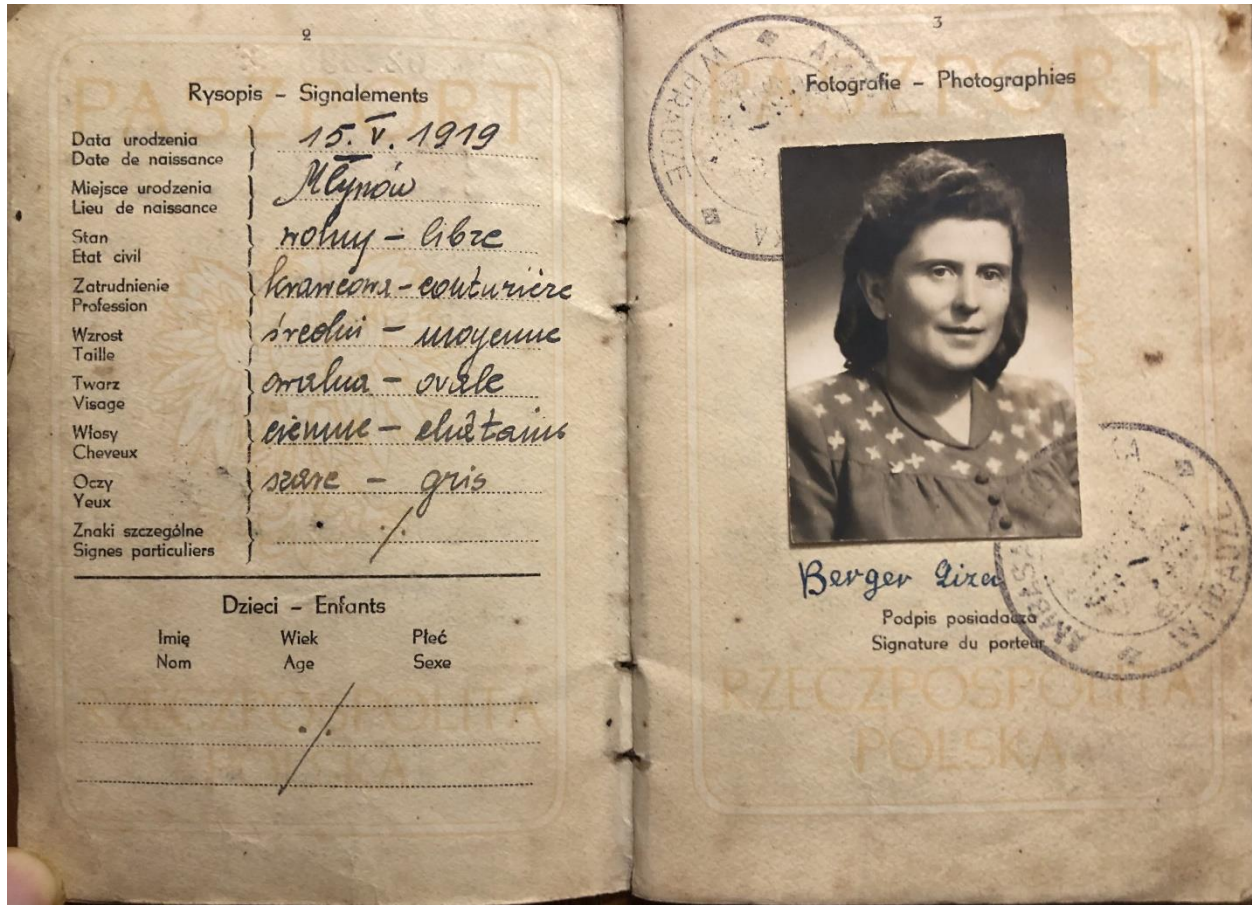 2
PASZPORT
Rysopis - Signalements
Data urodzenia
Date de naissance
15. V. 1919
Miejsce urodzenia
Lieu de naissance
Młynów
Stan
Etat civil
wolny - libre
Zatrudnienie
Profession
krawcowa - couturière
Wzrost
Taille
średni - moyenne
Twarz
Visage
owalna - ovale
Włosy
Cheveux
ciemne - châtains
Oczy
Yeux
szare - gris
Znaki szczególne
Signes particuliers
Dzieci - Enfants
Imię Wiek Płeć
Nom Age Sexe
RZECZPOSPOLITA
POLSKA
3
PASZPORT
Fotografie - Photographies
W PRADZE
Berger
Podpis posiadacza
Signature du porteur
W PRADZE
RZECZPOSPOLITA
POLSKA